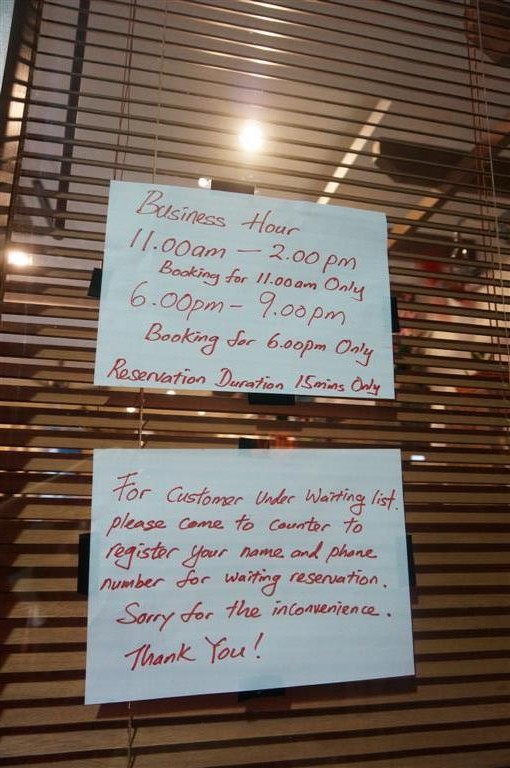 Business Hour
11.00am - 2.00pm
Booking for 11.00am Only
6.00pm - 9.00pm
Booking for 6.00pm Only
Reservation Duration 15mins Only
For Customer Under Waiting list.
please come to counter to
register your name and phone
number for waiting reservation.
Sorry for the inconvenience.
Thank You!